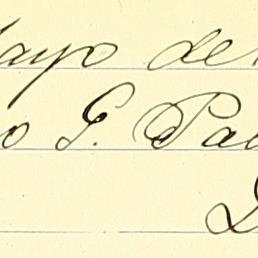 ayo de
o G. Pa
D